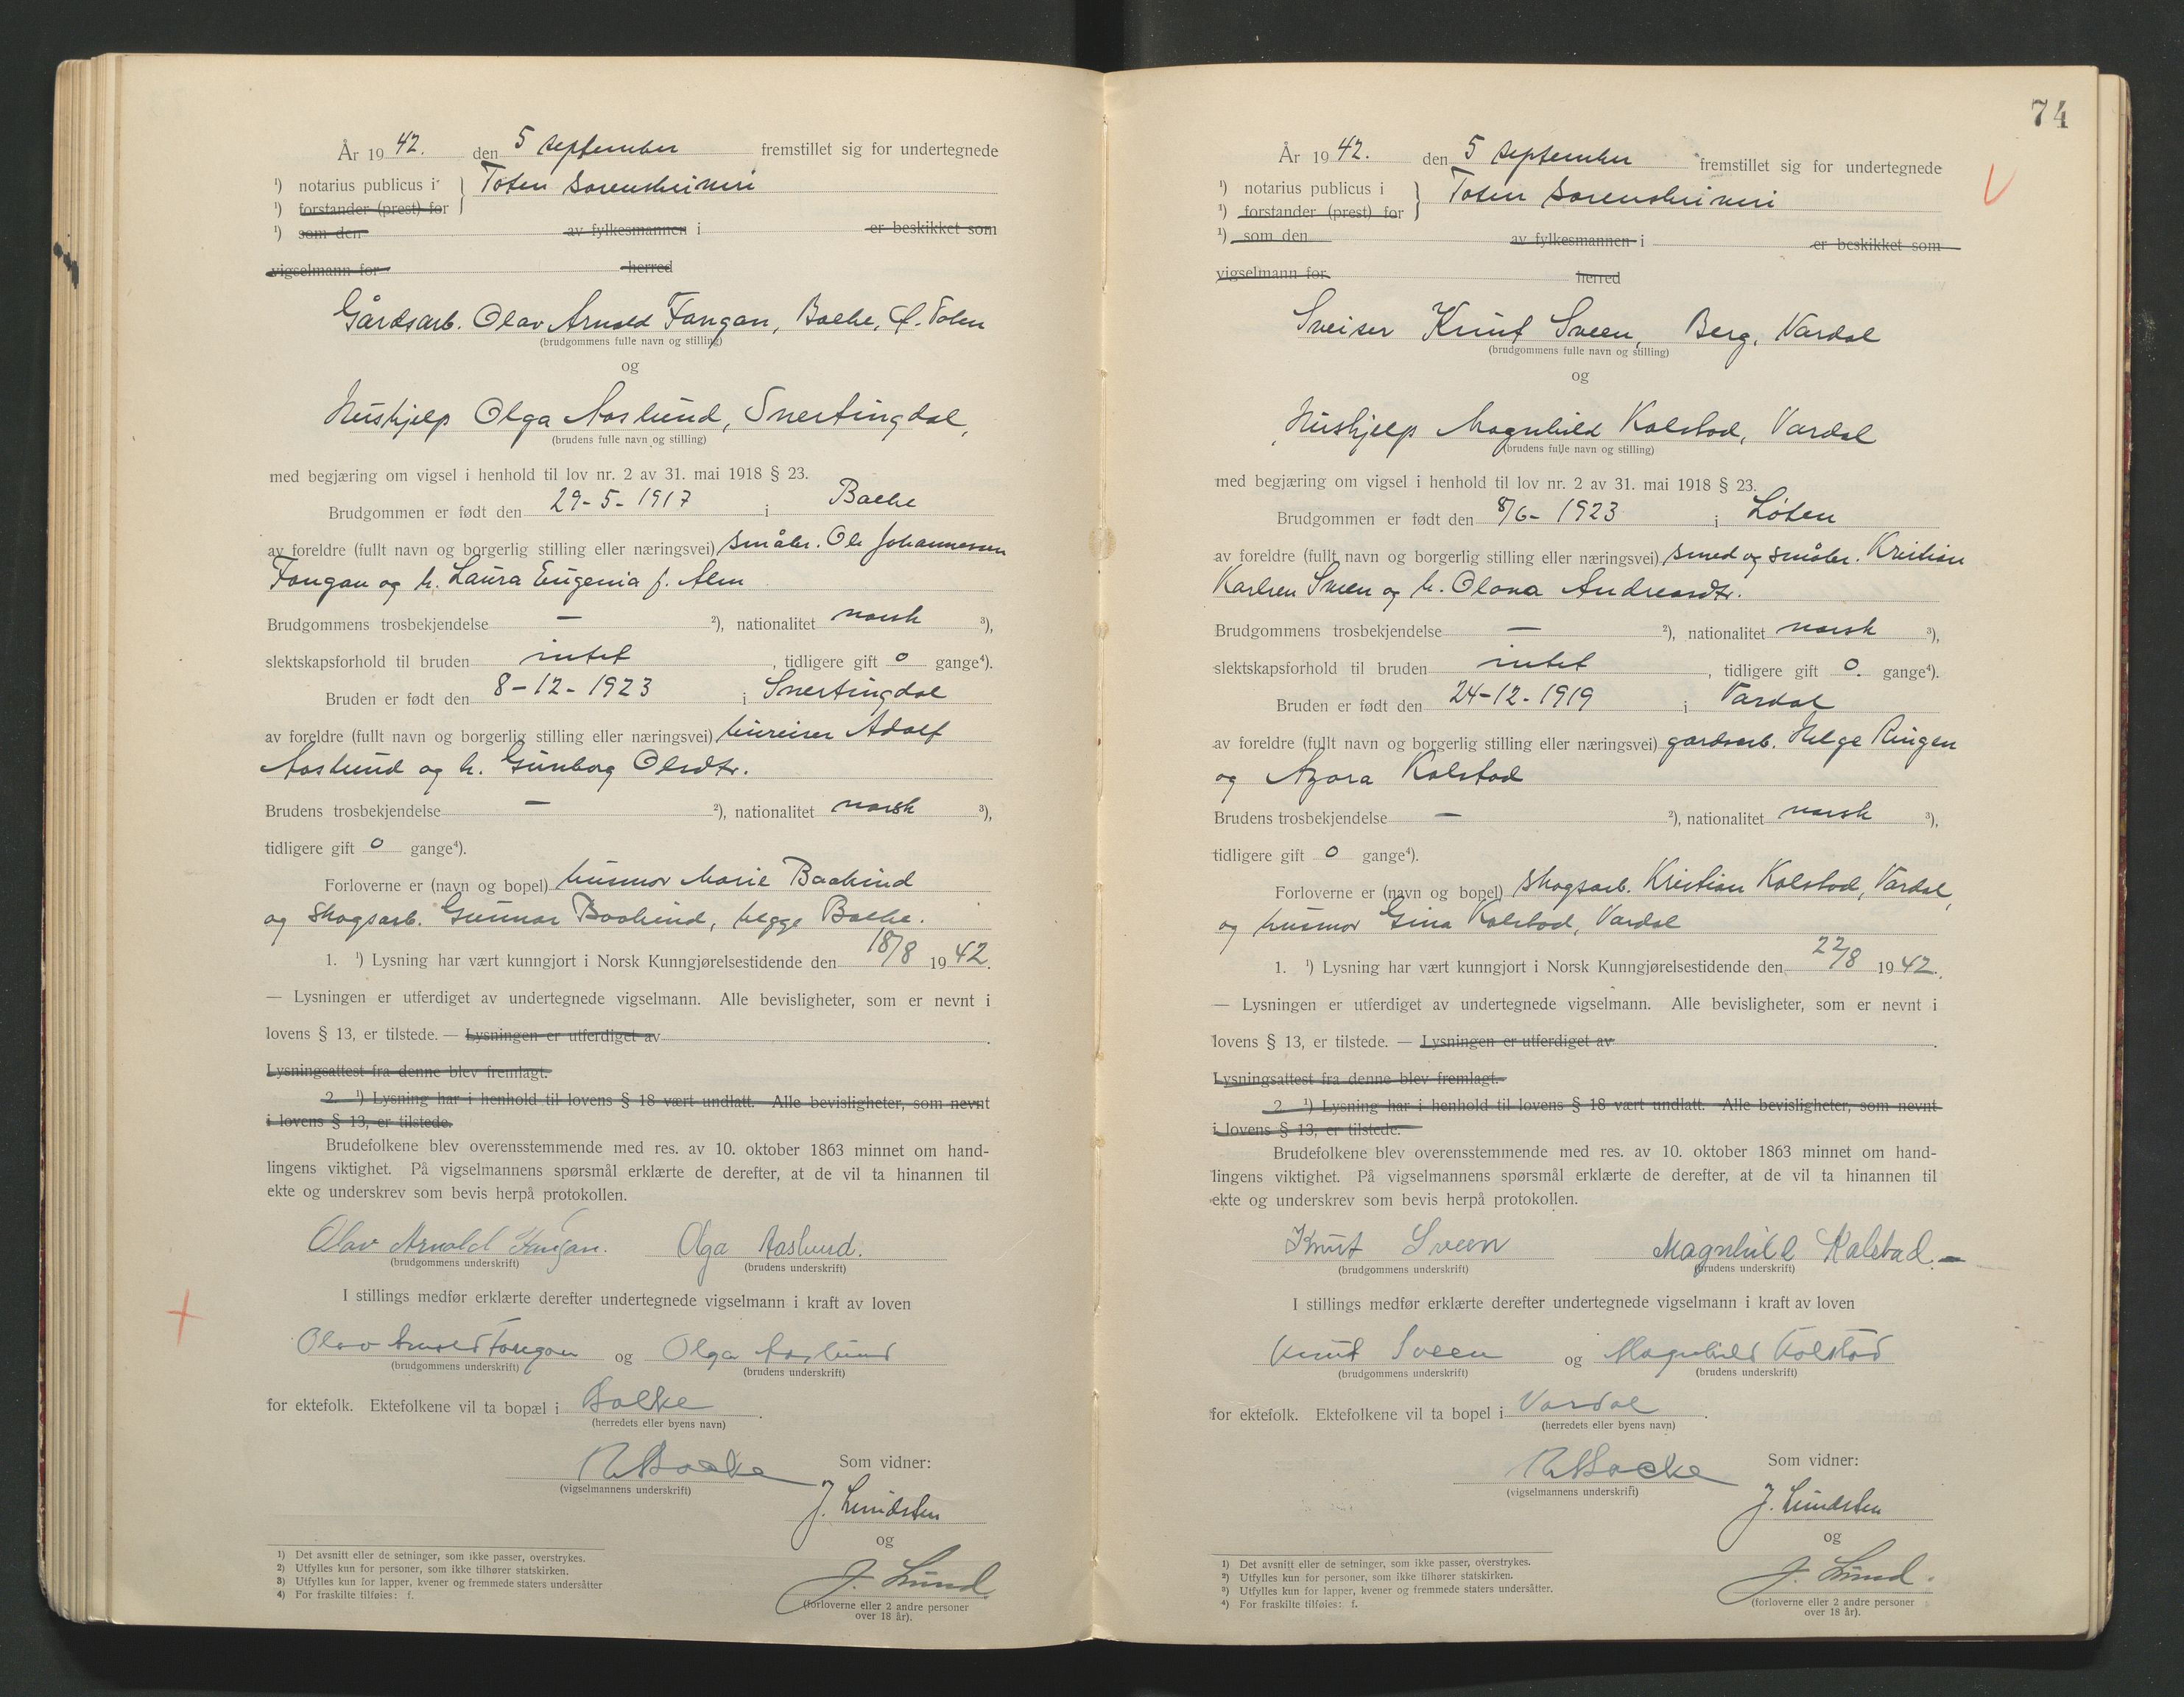 År 19 42. den 5 september fremstillet sig for undertegnede
¹) notarius publicus i } Toten sorenskriveri
¹) forstander (prest) for
¹) som den av fylkesmannen i er beskikket som
vigselmann for herred
Gårdsarb. Olav Arnold Fangan, Balke, Ø. Toten
(brudgommens fulle navn og stilling)
og
Hushjelp Olga Aaslund, Snertingdal,
(brudens fulle navn og stilling)
med begjæring om vigsel i henhold til lov nr. 2 av 31. mai 1918 § 23.
Brudgommen er født den 29-5-1917 i Balke
av foreldre (fullt navn og borgerlig stilling eller næringsvei) småbr. Ole Johannessen
Fangan og h. Laura Eugenia f. Alm
Brudgommens trosbekjendelse — ²), nationalitet norsk ³),
slektskapsforhold til bruden intet, tidligere gift 0 gange⁴).
Bruden er født den 8-12-1923 i Snertingdal
av foreldre (fullt navn og borgerlig stilling eller næringsvei) bureiser Adolf
Aaslund og h. Gunborg Olsdtr.
Brudens trosbekjendelse — ²), nationalitet norsk ³),
tidligere gift 0 gange⁴).
Forloverne er (navn og bopel) husmor Marie Baalund
og skogsarb. Gunnar Baalund, begge Balke.
1. ¹) Lysning har vært kunngjort i Norsk Kunngjørelsestidende den 18/8 19 42.
— Lysningen er utferdiget av undertegnede vigselmann. Alle bevisligheter, som er nevnt i
lovens § 13, er tilstede. — Lysningen er utferdiget av .
Lysningsattest fra denne blev fremlagt.
2. ¹) Lysning har i henhold til lovens § 18 vært undlatt. Alle bevisligheter, som nevnt
i lovens § 13, er tilstede.
Brudefolkene blev overensstemmende med res. av 10. oktober 1863 minnet om hand-
lingens viktighet. På vigselmannens spørsmål erklærte de derefter, at de vil ta hinannen til
ekte og underskrev som bevis herpå protokollen.
Olav Arnold Fangan. Olga Aaslund.
(brudgommens underskrift) (brudens underskrift)
I stillings medfør erklærte derefter undertegnede vigselmann i kraft av loven
Olav Arnold Fangan og Olga Aaslund
(brudgommens underskrift) (brudens underskrift)
for ektefolk. Ektefolkene vil ta bopæl i Balke .
(herredets eller byens navn)
Som vidner:
(vigselmannens underskrift)
J. Lundsten
og
J. Lund.
(forloverne eller 2 andre personer
over 18 år).
1) Det avsnitt eller de setninger, som ikke passer, overstrykes.
2) Utfylles kun for personer, som ikke tilhører statskirken.
3) Utfylles kun for lapper, kvener og fremmede staters undersåtter
4) For fraskilte tilføies: f.
74
År 19 42. den 5 september fremstillet sig for undertegnede
¹) notarius publicus i } Toten sorenskriveri
¹) forstander (prest) for
¹) som den av fylkesmannen i er beskikket som
vigselmann for herred
Sveiser Knut Sveen, Berg, Vardal
(brudgommens fulle navn og stilling)
og
Hushjelp Magnhild Kolstad, Vardal
(brudens fulle navn og stilling)
med begjæring om vigsel i henhold til lov nr. 2 av 31. mai 1918 § 23.
Brudgommen er født den 8/6-1923 i Løten
av foreldre (fullt navn og borgerlig stilling eller næringsvei) smed og småbr. Kristian
Karlsen Sveen og h. Olava Andreasdtr.
Brudgommens trosbekjendelse — ²), nationalitet norsk ³),
slektskapsforhold til bruden intet, tidligere gift 0. gange⁴).
Bruden er født den 24-12-1919 i Vardal
av foreldre (fullt navn og borgerlig stilling eller næringsvei) gardsarb. Helge Ringen
og Azora Kolstad
Brudens trosbekjendelse — ²), nationalitet norsk ³),
tidligere gift 0 gange⁴).
Forloverne er (navn og bopel) skogsarb. Kristian Kolstad, Vardal,
og husmor Gina Kolstad, Vardal
1. ¹) Lysning har vært kunngjort i Norsk Kunngjørelsestidende den 22/8 19 42.
— Lysningen er utferdiget av undertegnede vigselmann. Alle bevisligheter, som er nevnt i
lovens § 13, er tilstede. — Lysningen er utferdiget av .
Lysningsattest fra denne blev fremlagt.
2. ¹) Lysning har i henhold til lovens § 18 vært undlatt. Alle bevisligheter, som nevnt
i lovens § 13, er tilstede.
Brudefolkene blev overensstemmende med res. av 10. oktober 1863 minnet om hand-
lingens viktighet. På vigselmannens spørsmål erklærte de derefter, at de vil ta hinannen til
ekte og underskrev som bevis herpå protokollen.
Knut Sveen Magnhild Kolstad.
(brudgommens underskrift) (brudens underskrift)
I stillings medfør erklærte derefter undertegnede vigselmann i kraft av loven
Knut Sveen og Magnhild Kolstad
(brudgommens underskrift) (brudens underskrift)
for ektefolk. Ektefolkene vil ta bopel i Vardal .
(herredets eller byens navn)
Som vidner:
(vigselmannens underskrift)
J. Lundsten
og
J. Lund.
(forloverne eller 2 andre personer
over 18 år).
1) Det avsnitt eller de setninger, som ikke passer, overstrykes.
2) Utfylles kun for personer, som ikke tilhører statskirken.
3) Utfylles kun for lapper, kvener og fremmede staters undersåtter.
4) For fraskilte tilføies: f.